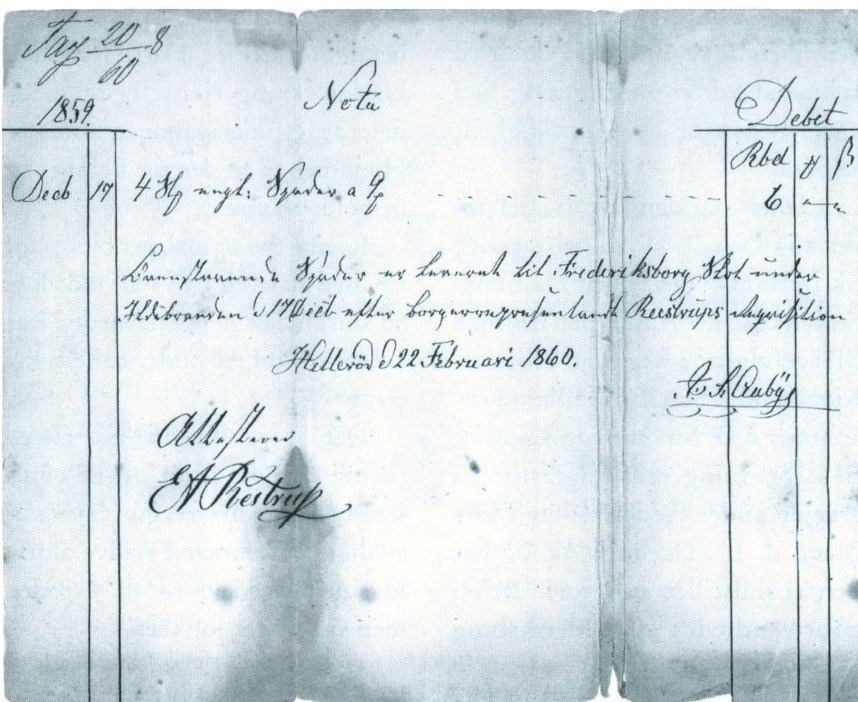 20 8
60
1859. Nota Debet
Rbd ₰ β
Decb 17 4 Stk engl: Spader a 9 ₰ 6 " "
Ovenstaaende Spader er leveret til Frederiksborg Slot under
Ildebranden d 17 Decb efter Borgerrepræsentant Reestrups Requisition
Hilleröd d 22 Februari 1860.
Attesterer
E Restrup